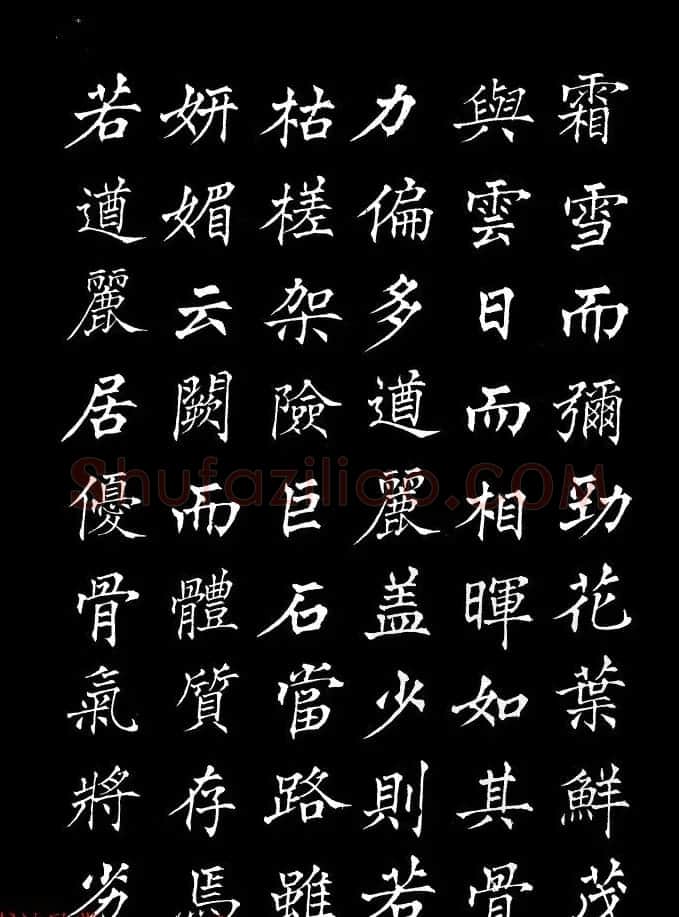 霜雪而彌勁花葉鮮茂
與雲日而相暉如其骨
力偏多遒麗盖少則若
枯槎架險巨石當路雖
妍媚云闕而體質存焉
若遒麗居優骨氣將劣
Shufaziliao.COM